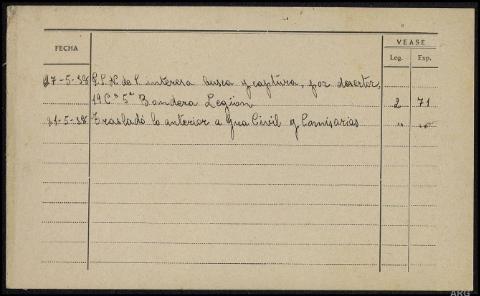 VEASE
FECHA Leg. Exp.
27-5-38 busca y captura, por desertor,
19 Cª 5ª Bandera Legion 2 71
31-5-38 Trasladó lo anterior a Gua Civil y Comisarias " "
ARG